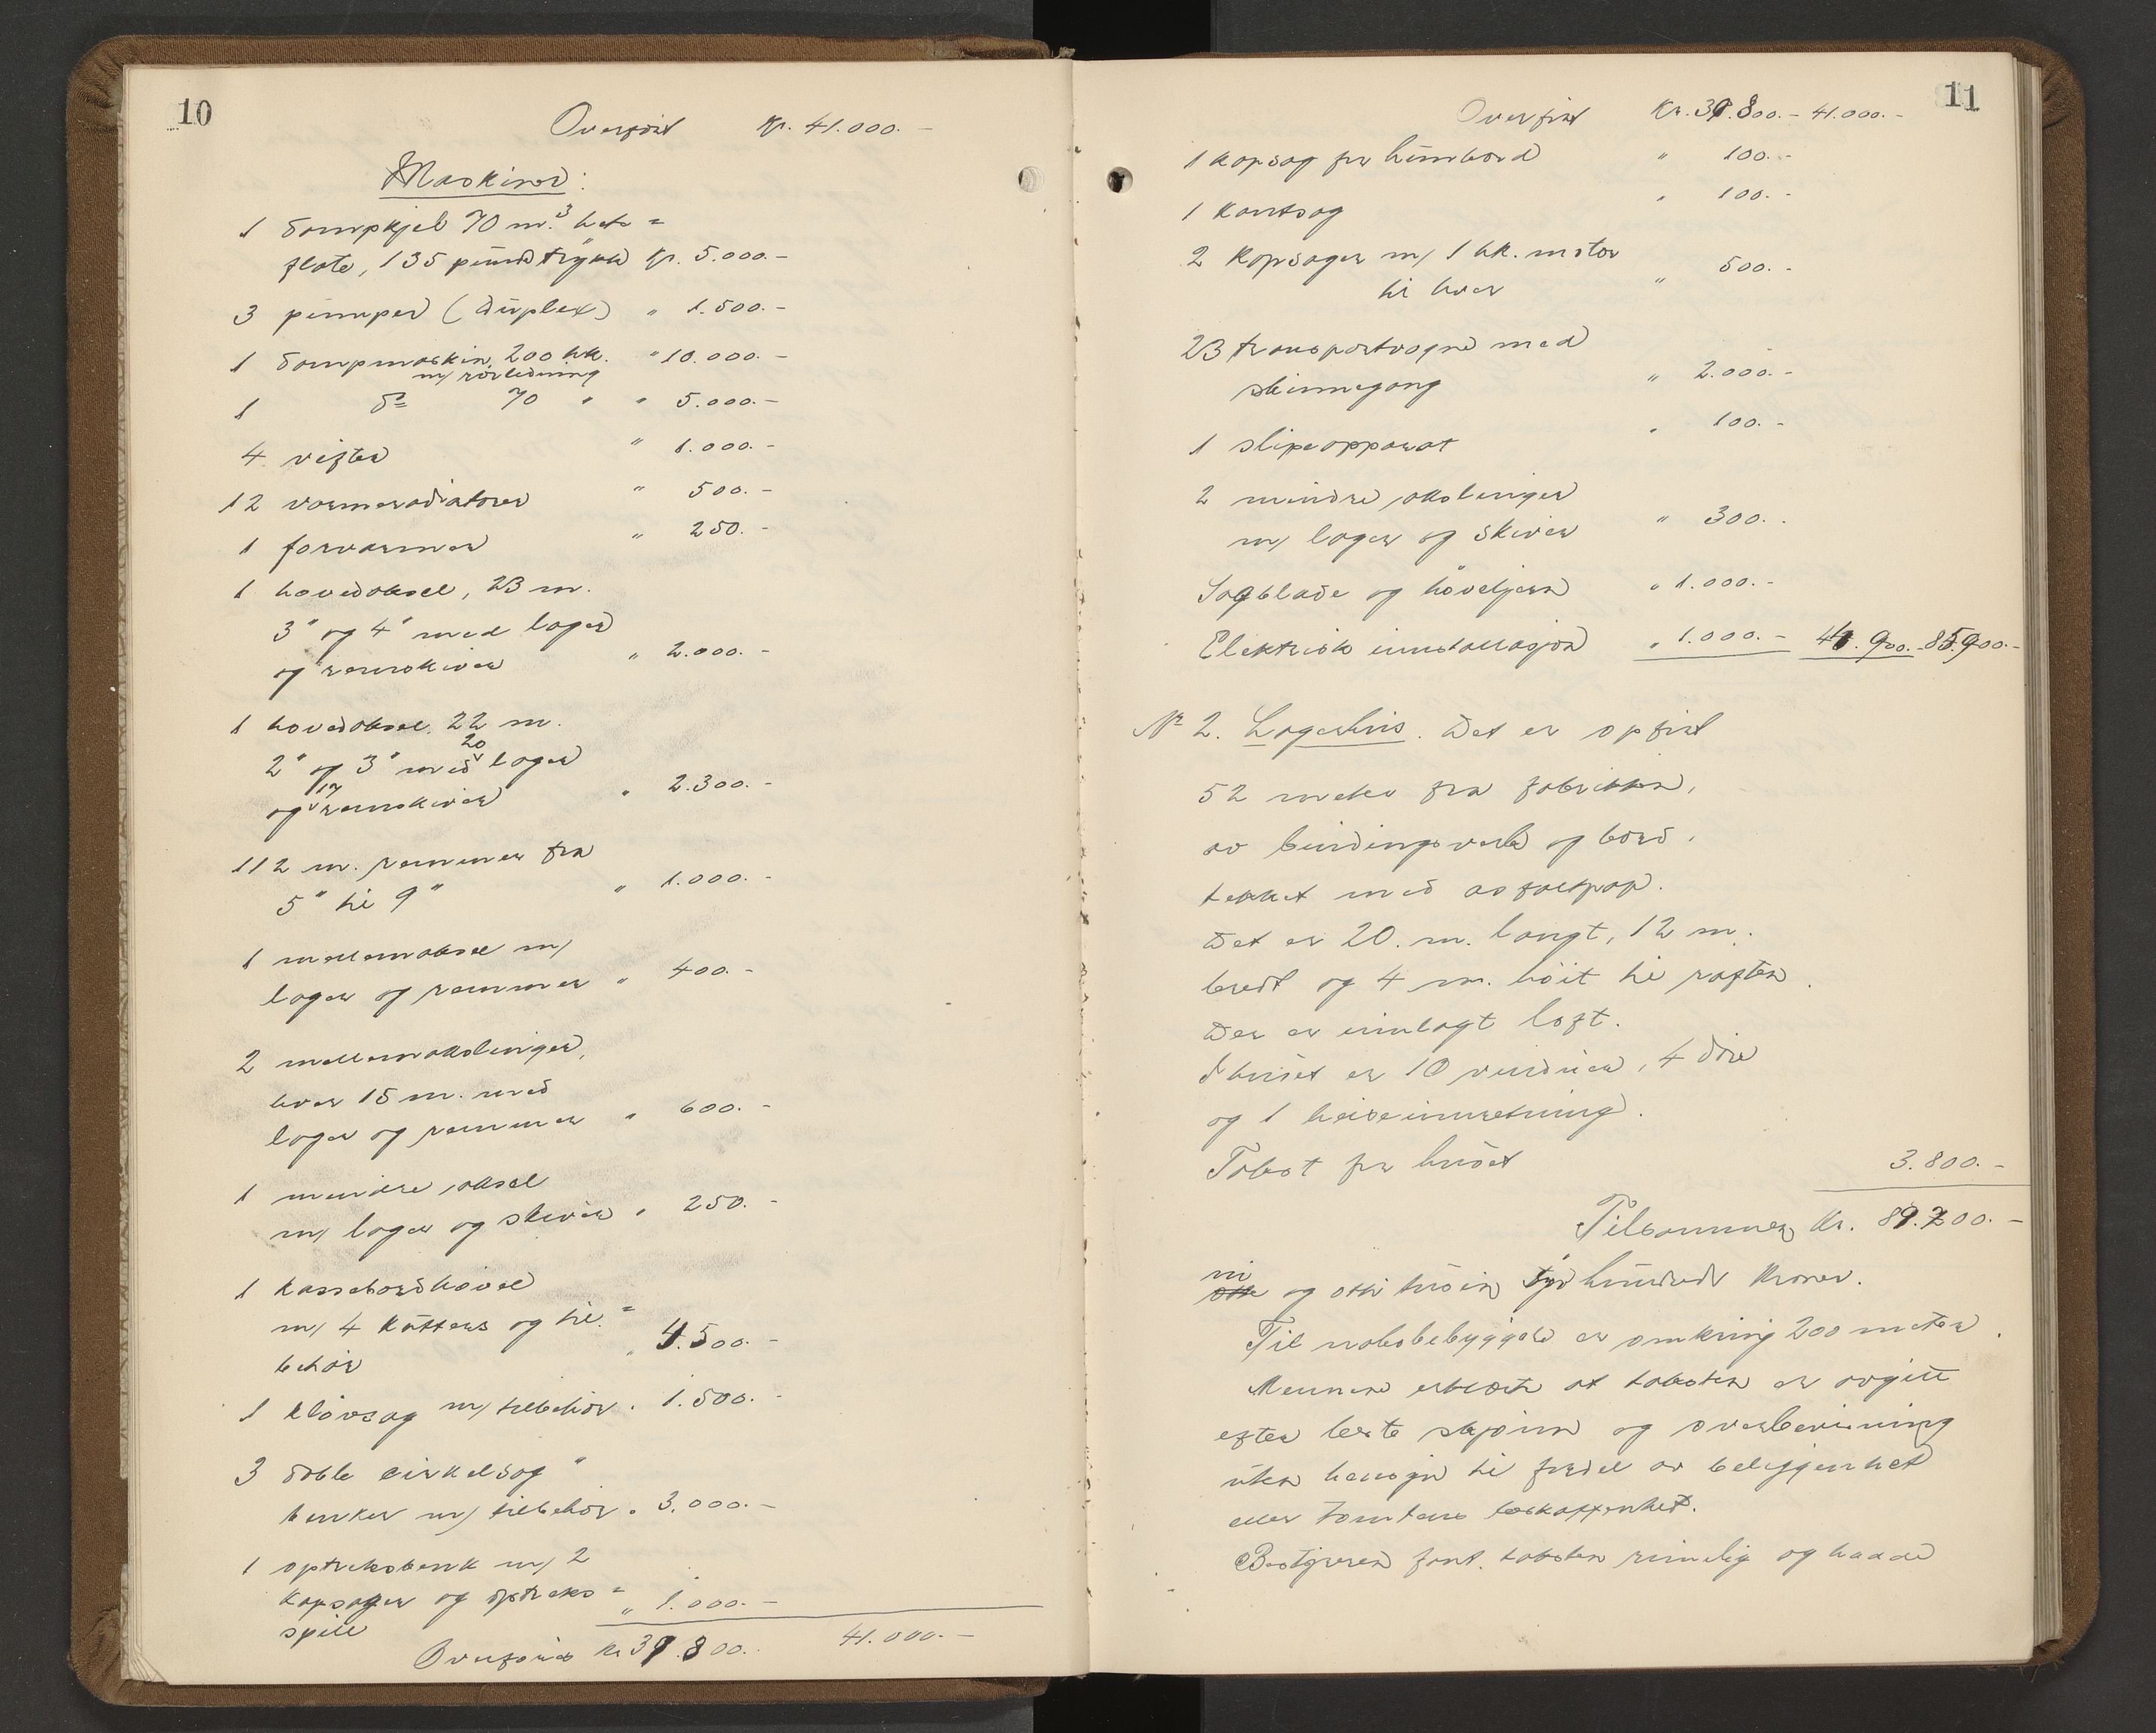 10
Overført Kr. 41.000.-
Maskiner:
1 dampkjel 70 m.³ hete=
flate, 135 pund trykk Kr. 5.000.-
3 pumper (duplex) " 1.500.-
1 dampmaskin, 200 hk. " 10.000.-
m/ rörledning
1 do 70 " " 5.000.-
4 vifter " 1.000.-
12 varmeradiatorer " 500.-
1 forvarmer " 250.-
1 hovedaksel, 23 m.
3" og 4" med lager
og remskiver " 2.000.-
1 hovedaksel, 22 m.
2" og 3" med 20 lager
og 17 remskiver " 2.300.-
112 m. remmer fra
5" til 9" " 1.000.-
1 mellemaksel m/
lager og remmer " 400.-
2 mellemakslinger,
hver 15 m. med
lager og remmer " 600.-
1 mindre aksel
m/ lager og skiver " 250.-
1 kassebordhövel
m/ 4 kuttere og til=
behör " 4.500.-
1 klövsag m/ tilbehör " 1.500.-
3 doble cirkelsag=
benker m/ tilbehör " 3.000.-
1 optreksbenk m/ 2
kapsager og optreks=
spill " 1.000.-
Overföres Kr. 39.800. 41.000.-
11
Overført Kr. 39.800.- 41.000.-
1 kapsag for hunbord " 100.-
1 kantsag " 100.-
2 kapsager m/ 1 hk. motor
til hver " 500.-
23 transportvogne med
skinnegang " 2.000.-
1 slipeapparat " 100.-
2 mindre akslinger
m/ lager og skiver " 300.-
Sagblade og høveljern " 1.000.-
Elektrisk innstallasjon " 1.000.- 44.900.- 85.900.-
Nr 2. Lagerhus. Det er opført
52 meter fra fabrikken,
av bindingsverk og bord,
tekket med asfaltpap.
Det er 20. m. langt, 12 m.
bredt og 4 m. höit til raften.
Der er innlagt loft.
I huset er 10 vinduer, 4 döre
og 1 heiseinnretning.
Takst for huset 3.800.-
Tilsammen Kr. 89.700.-
ni
otte og otti tusen syv hundrede kroner.
Til nabobebyggelse er omkring 200 meter.
Mennene erklærte at taksten er avgitt
efter beste skjønn og overbevisning
uten hensyn til fordel av beliggenhet
eller tomtens beskaffenhet.
Bestyreren fant taksten rimelig og hadde